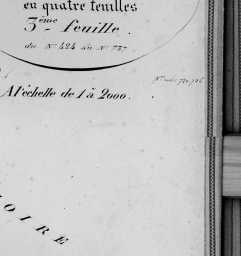 en quatre feuilles
3ème feuille.
du N° 424 au N° 737
A l'échelle de 1 à 2000.
LOIRE